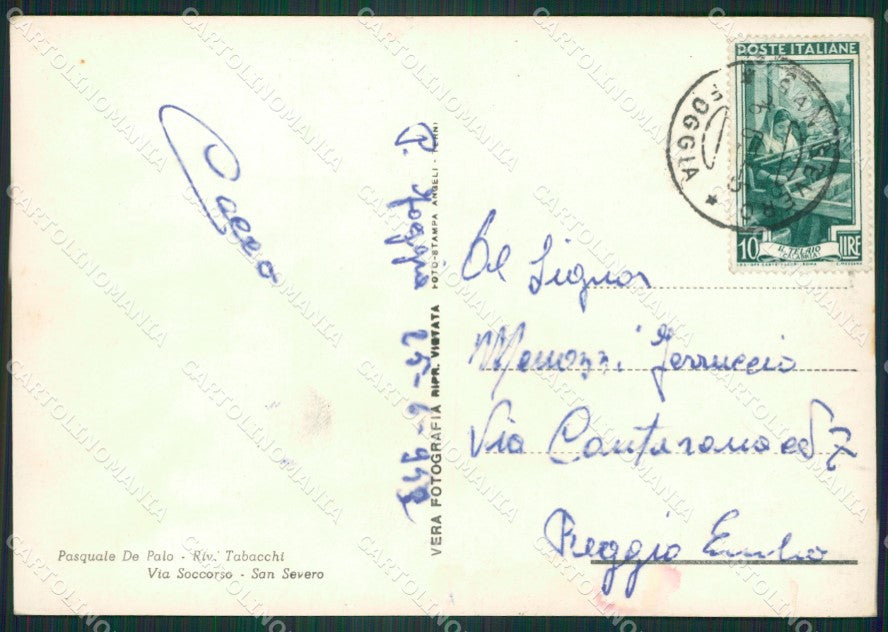 POSTE ITALIANE
10 LIRE
IL TELAIO
FOGGIA
Al Signor
Menozzi Ferruccio
Via Cantarana
Reggio Emilia
VERA FOTOGRAFIA RIPR. VIETATA FOTO-STAMPA ANGELI - TERNI
Foggia 25-6-
Pasquale De Palo - Riv. Tabacchi
Via Soccorso - San Severo
CARTOLINOMANIA